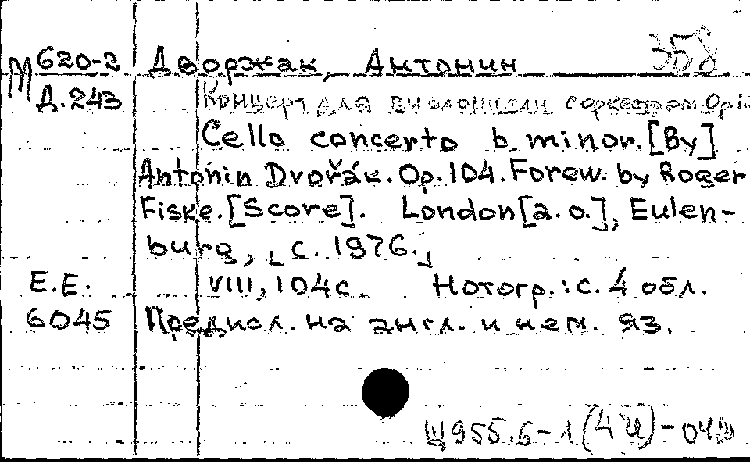 М 620-2 Дворжак, Антонин 358
Д.243 Концерт для виолончели с оркестром Op
Cello concerto b minor. [By]
Antonin Dvořák. Op. 104. Forew. by Roger
Fiske. [Score]. London [a. o.], Eulen-
burg, [с. 1976.]
Е.Е. VIII, 104 с. Нотогр.: с. 4 обл.
6045 Предисл. на англ. и нем. яз.
Щ955.6-1(4Ч)-04